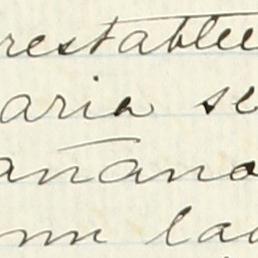 restablec
aria se
añana
nn la